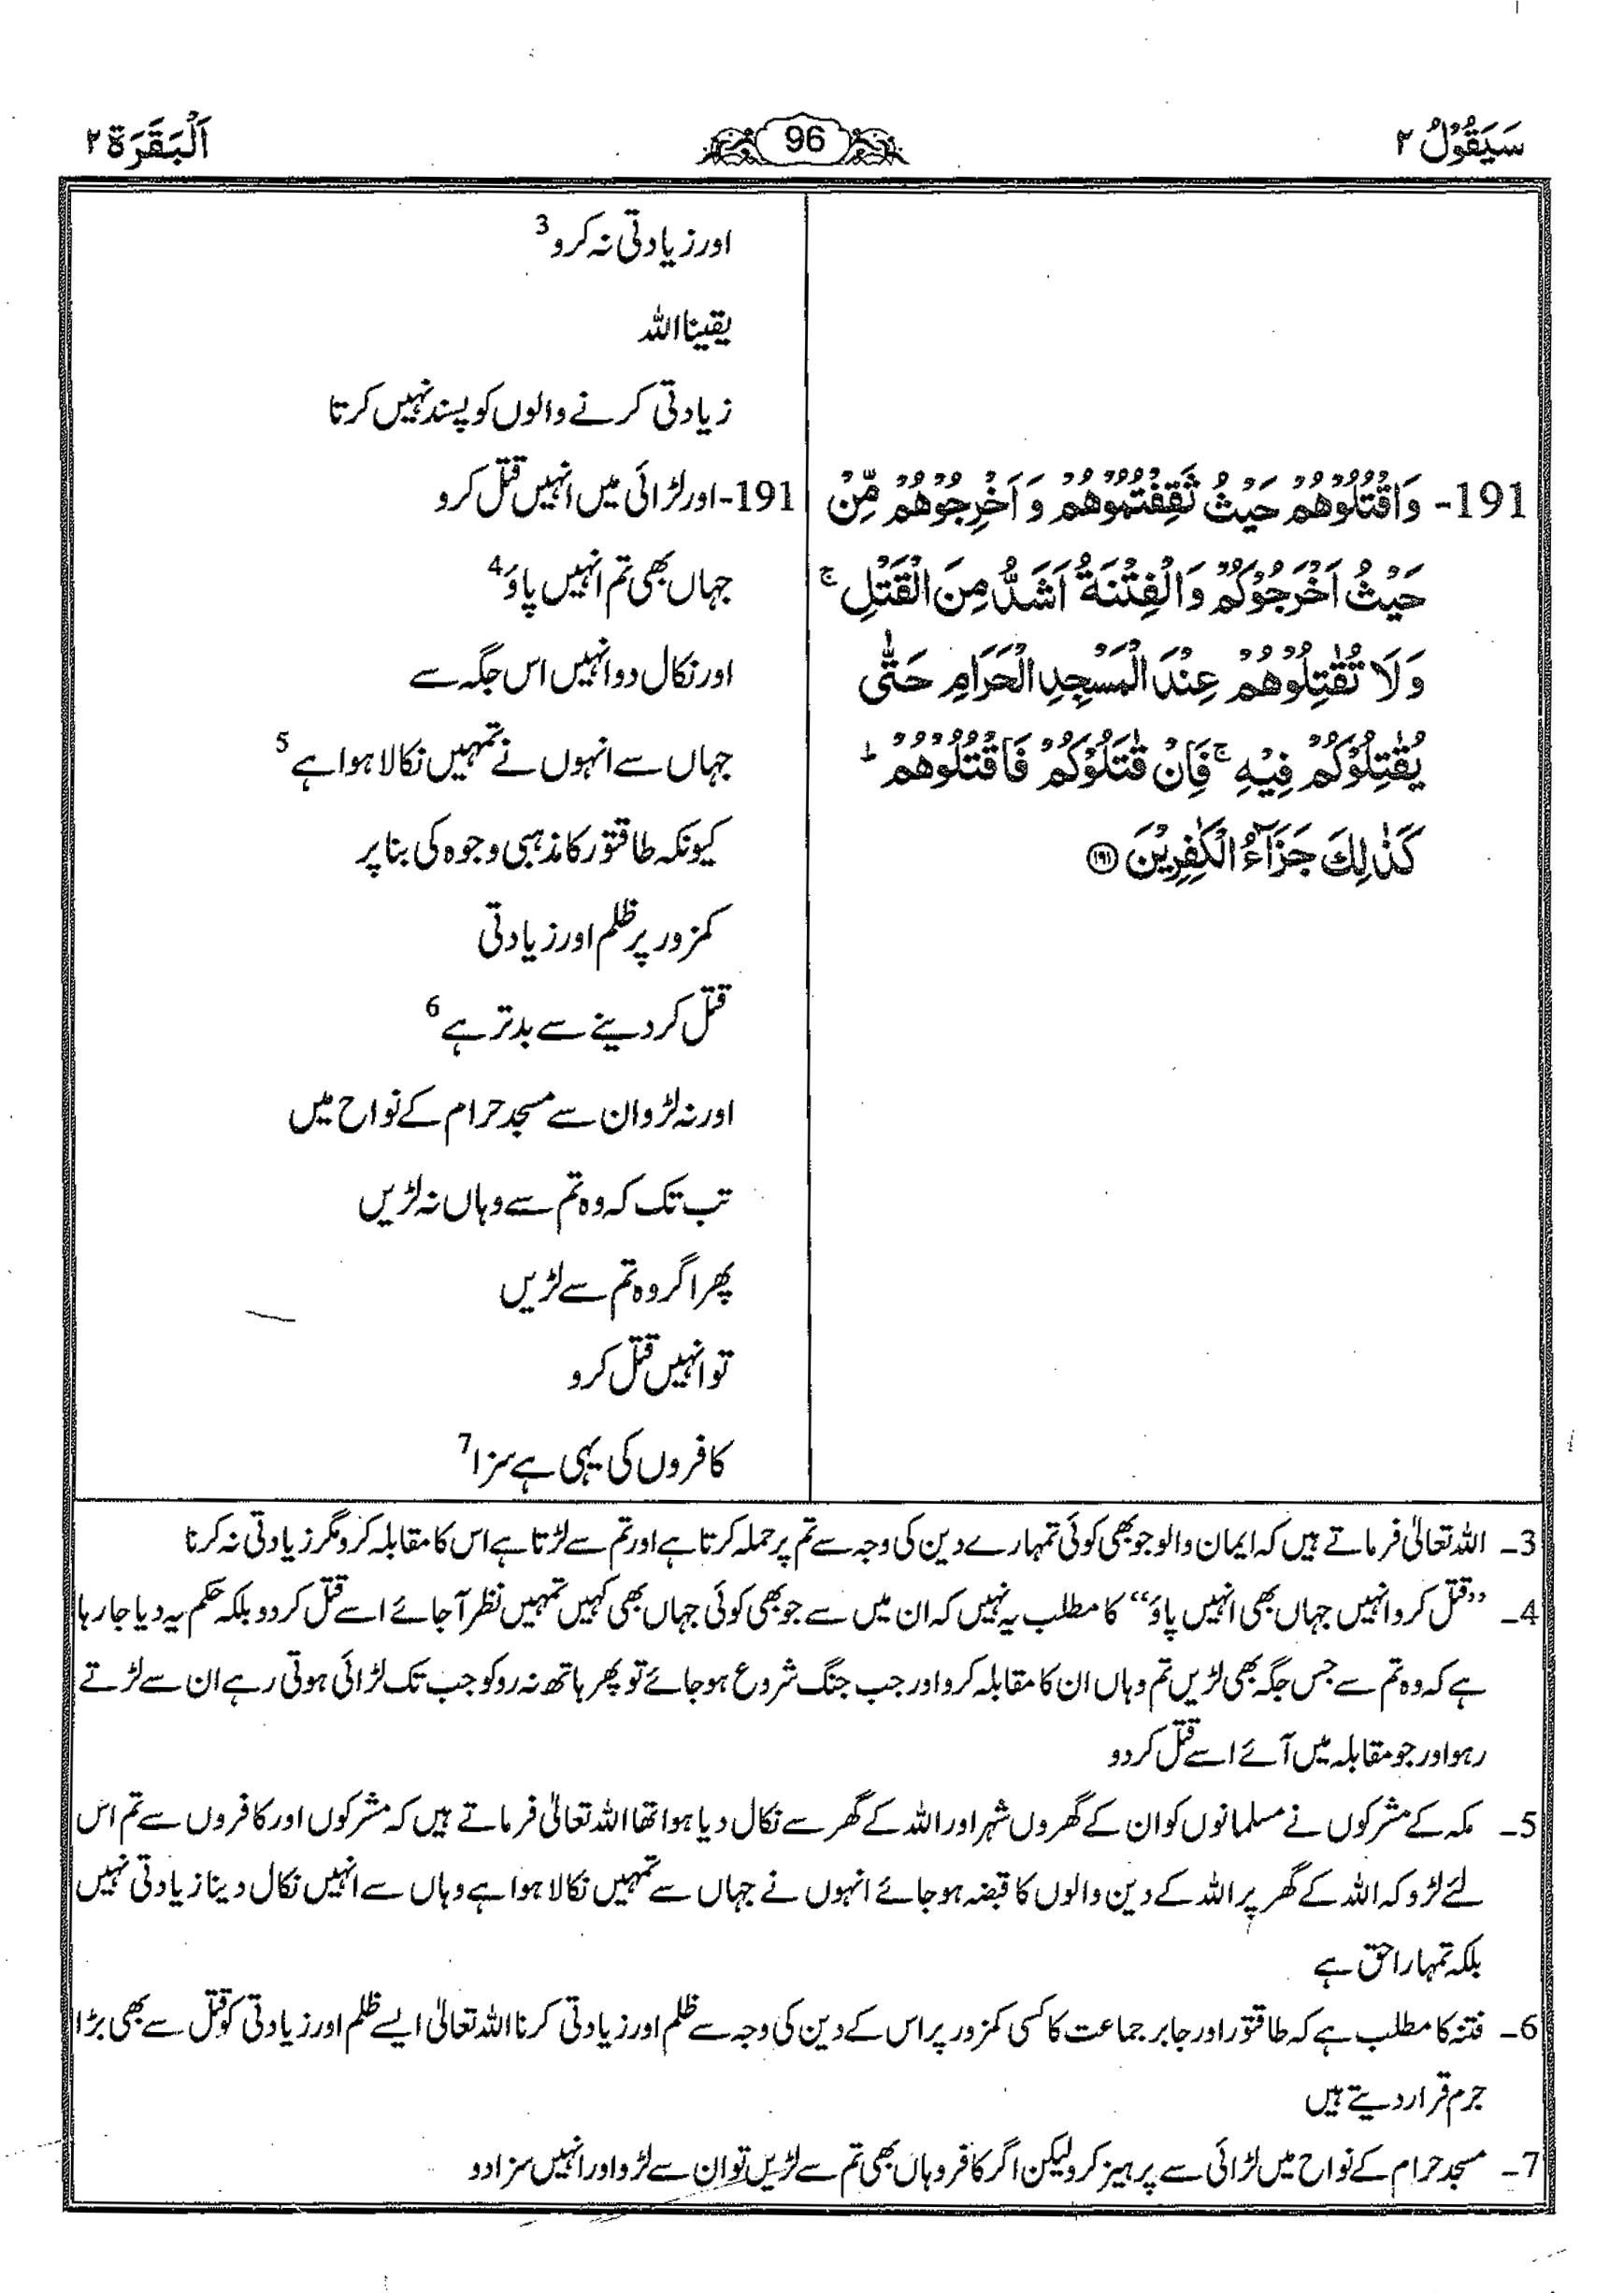 سَيَقُوْلُ ۲
96
اَلْبَقَرَة ۲
191- وَاقْتُلُوْهُمْ حَيْثُ ثَقِفْتُمُوْهُمْ وَ اَخْرِجُوْهُمْ مِّنْ
حَيْثُ اَخْرَجُوْكُمْ وَالْفِتْنَةُ اَشَدُّ مِنَ الْقَتْلِ ۚ
وَلَا تُقٰتِلُوْهُمْ عِنْدَ الْمَسْجِدِ الْحَرَامِ حَتّٰى
يُقٰتِلُوْكُمْ فِيْهِ ۚ فَاِنْ قٰتَلُوْكُمْ فَاقْتُلُوْهُمْ ؕ
كَذٰلِكَ جَزَآءُ الْكٰفِرِيْنَ ۝۱۹۱
اور زیادتی نہ کرو 3
یقینا اللہ
زیادتی کرنے والوں کو پسند نہیں کرتا
191- اور لڑائی میں انہیں قتل کرو
جہاں بھی تم انہیں پاؤ 4
اور نکال دو انہیں اس جگہ سے
جہاں سے انہوں نے تمہیں نکالا ہوا ہے 5
کیونکہ طاقتور کا مذہبی وجوہ کی بنا پر
کمزور پر ظلم اور زیادتی
قتل کر دینے سے بدتر ہے 6
اور نہ لڑو ان سے مسجد حرام کے نواح میں
تب تک کہ وہ تم سے وہاں نہ لڑیں
پھر اگر وہ تم سے لڑیں
تو انہیں قتل کرو
کافروں کی یہی ہے سزا 7
3۔ اللہ تعالیٰ فرماتے ہیں کہ ایمان والو جو بھی کوئی تمہارے دین کی وجہ سے تم پر حملہ کرتا ہے اور تم سے لڑتا ہے اس کا مقابلہ کرو مگر زیادتی نہ کرنا
4۔ ”قتل کرو انہیں جہاں بھی انہیں پاؤ“ کا مطلب یہ نہیں کہ ان میں سے جو بھی کوئی جہاں بھی کہیں تمہیں نظر آ جائے اسے قتل کر دو بلکہ حکم یہ دیا جا رہا
ہے کہ وہ تم سے جس جگہ بھی لڑیں تم وہاں ان کا مقابلہ کرو اور جب جنگ شروع ہو جائے تو پھر ہاتھ نہ روکو جب تک لڑائی ہوتی رہے ان سے لڑتے
رہو اور جو مقابلہ میں آئے اسے قتل کر دو
5۔ مکہ کے مشرکوں نے مسلمانوں کو ان کے گھروں شہر اور اللہ کے گھر سے نکال دیا ہوا تھا اللہ تعالیٰ فرماتے ہیں کہ مشرکوں اور کافروں سے تم اس
لئے لڑو کہ اللہ کے گھر پر اللہ کے دین والوں کا قبضہ ہو جائے انہوں نے جہاں سے تمہیں نکالا ہوا ہے وہاں سے انہیں نکال دینا زیادتی نہیں
بلکہ تمہارا حق ہے
6۔ فتنہ کا مطلب ہے کہ طاقتور اور جابر جماعت کا کسی کمزور پر اس کے دین کی وجہ سے ظلم اور زیادتی کرنا اللہ تعالیٰ ایسے ظلم اور زیادتی کو قتل سے بھی بڑا
جرم قرار دیتے ہیں
7۔ مسجد حرام کے نواح میں لڑائی سے پرہیز کرو لیکن اگر کافر وہاں بھی تم سے لڑیں تو ان سے لڑو اور انہیں سزا دو